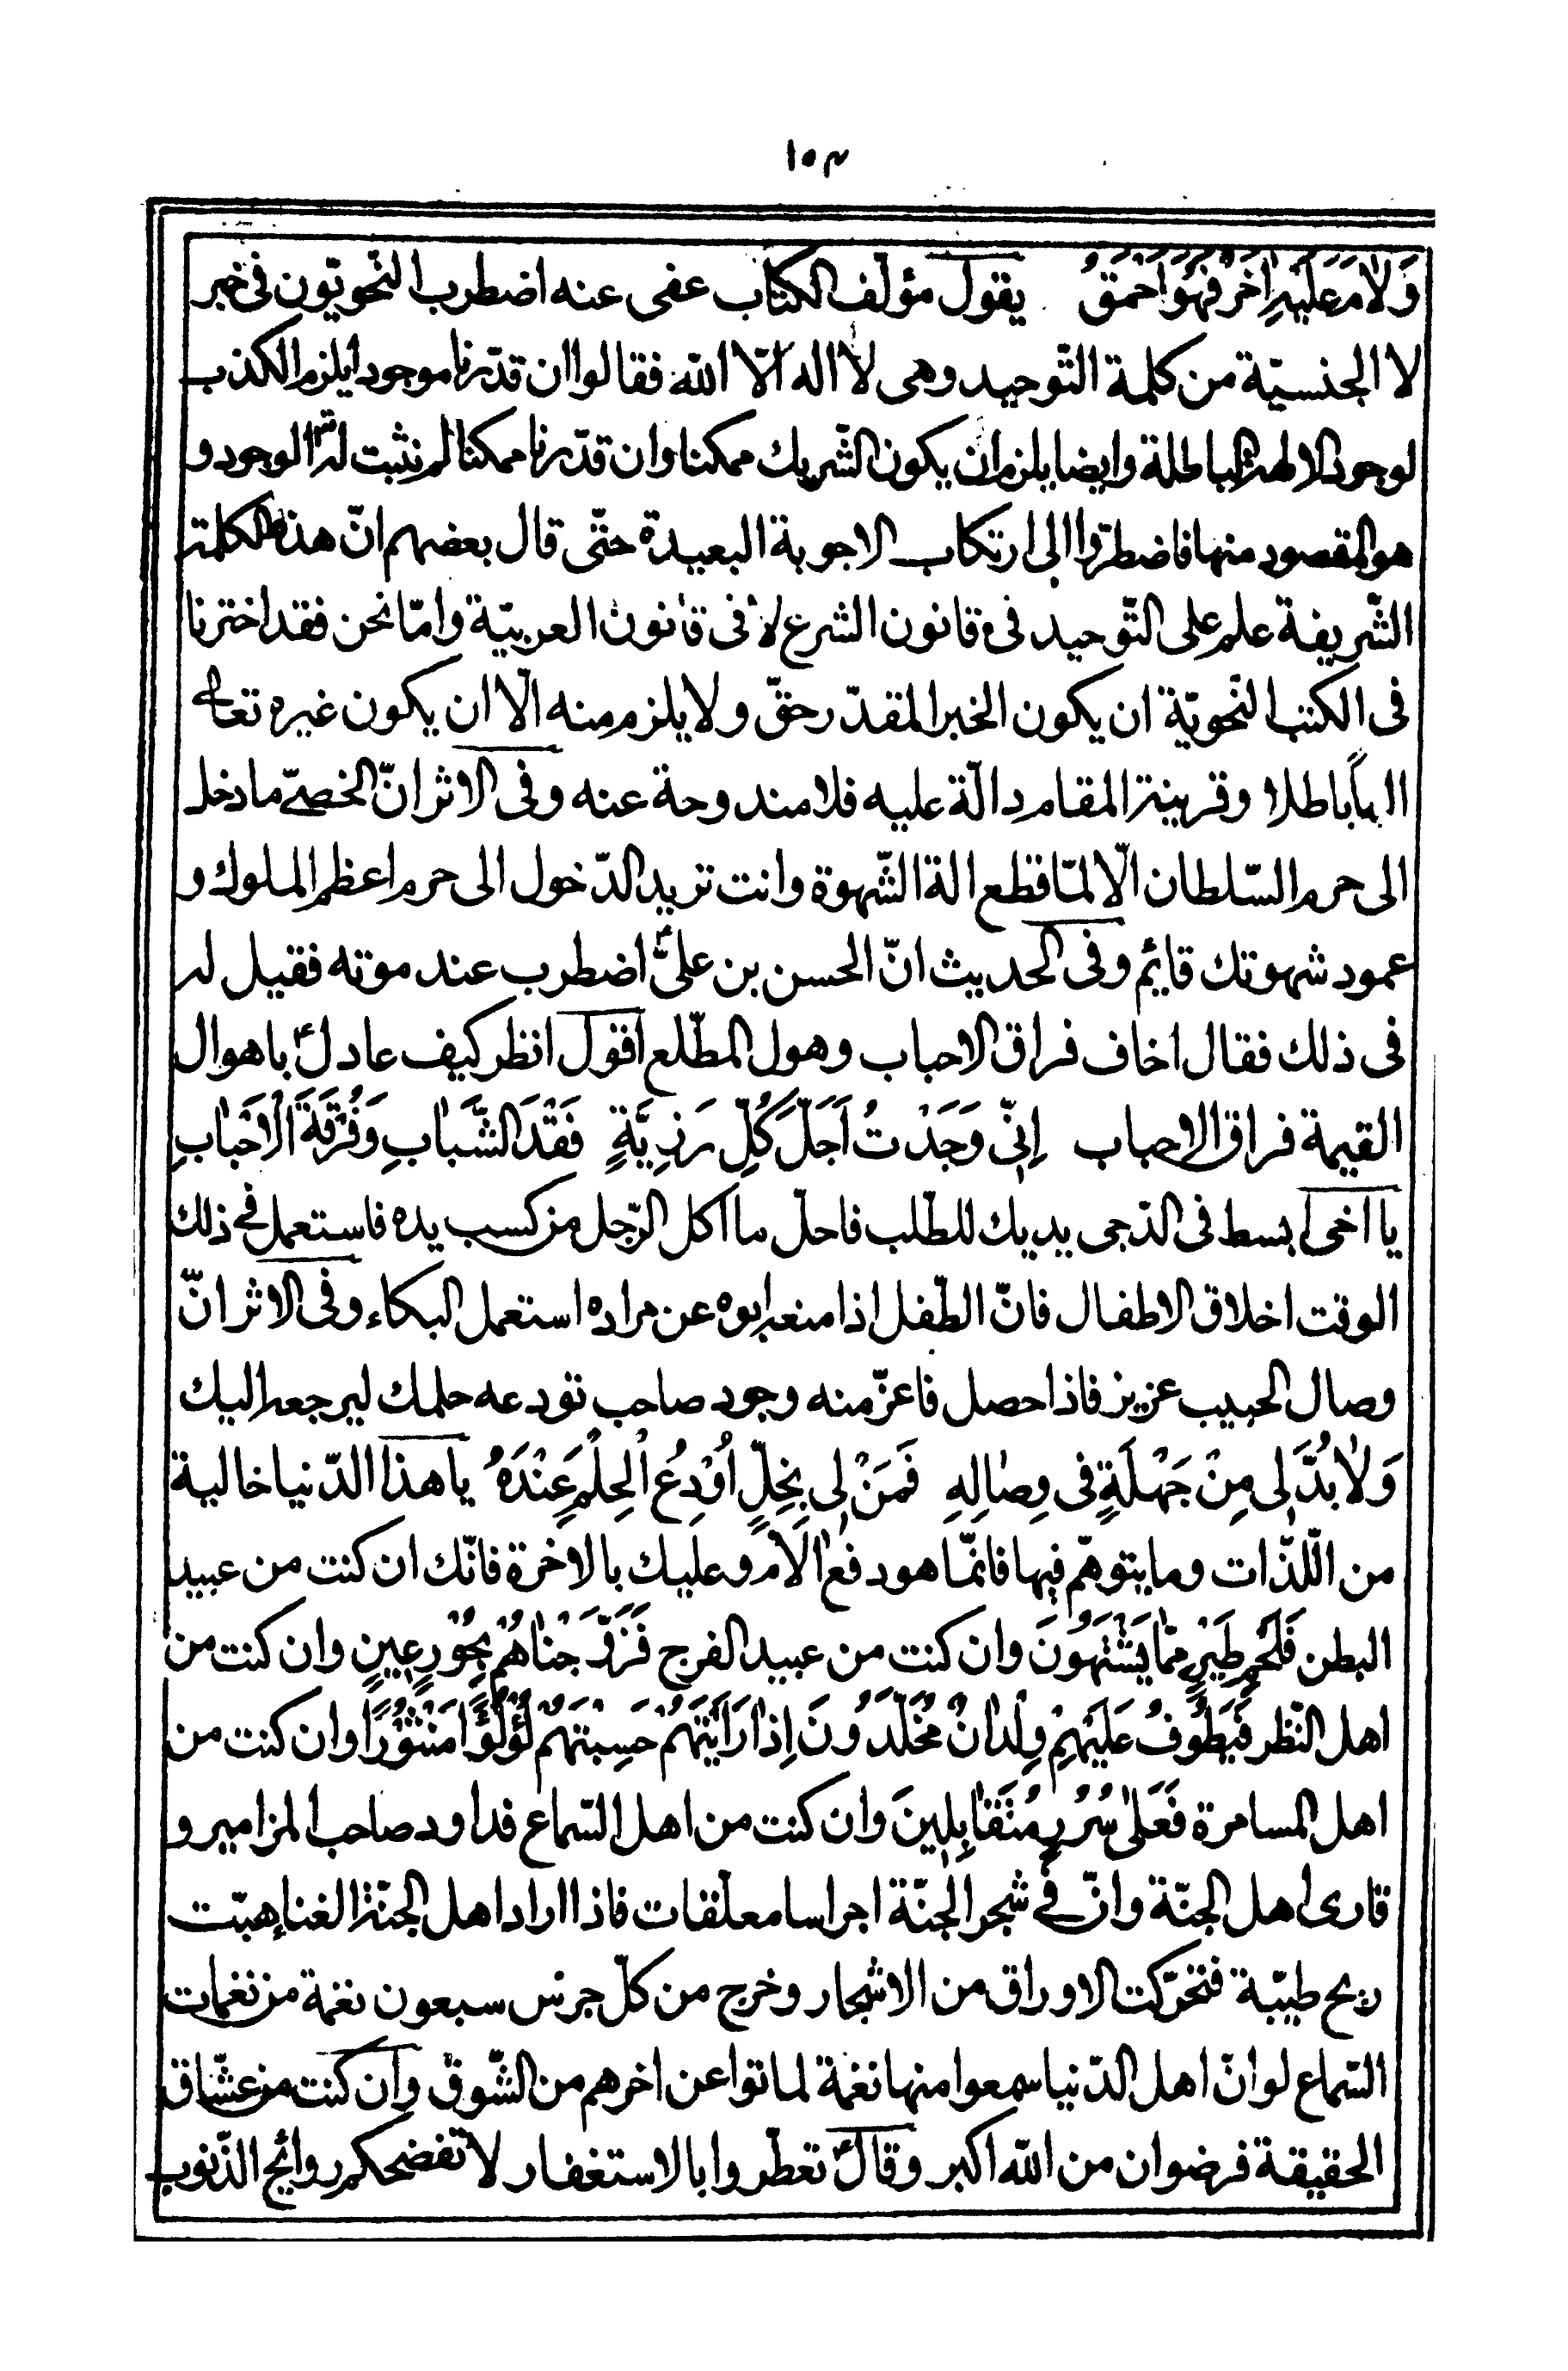 ١٥٣
وَلَامَ عَلَيْهِ اٰخَرُ فَهُوَ اَحْمَقُ يقول مؤلّف الكتاب عفى عنه اضطرب النّحويّون فى خبر
لا الجنسيّة من كلمة التّوحيد وهى لا اله الّا اللّه فقالوا ان قدّرنا موجود ايلزم الكذب
لوجود الالهة الباطلة وايضا يلزم ان يكون الشّريك ممكنا وان قدّرنا ممكنا لم نثبت له الوجود و
هو المقصود منها فاضطرّوا الى ارتكاب الاجوبة البعيدة حتّى قال بعضهم انّ هذه الكلمة
الشّريفة علم على التّوحيد فى قانون الشرع لا فى قانون العربيّة وامّا نحن فقد اخترنا
فى الكتب النّحويّة ان يكون الخبر المقدّر حقّ ولا يلزم منه الّا ان يكون غيره تعالى
الهاً باطلا وقرينة المقام دالّة عليه فلا مندوحة عنه وفى الاثر انّ الخصىّ ما دخل
الى حرم السّلطان الّا لمّا قطع الة الشّهوة وانت تريد الدّخول الى حرم اعظم الملوك و
عمود شهوتك قايم وفى الحديث انّ الحسن بن علىّ اضطرب عند موته فقيل له
فى ذلك فقال اخاف فراق الاحباب وهول المطّلع اقول انظر كيف عادل باهوال
القيمة فراق الاحباب اِنّى وَجَدْتُ اَجَلَّ كُلِّ رَزِيَّةٍ فَقْدَ الشَّبٰابِ وَفُرْقَةَ الْاَحْبٰابِ
يا اخى ابسط فى الدّجى يديك للطّلب فاحلّ ما اكل الرّجل من كسب يده فاستعمل فى ذلك
الوقت اخلاق الاطفال فانّ الطّفل اذا منعه ابوه عن مراده استعمل البكاء وفى الاثر انّ
وصال الحبيب عزيز فاذا حصل فاعزّ منه وجود صاحب تودعه حلمك ليرجعه اليك
وَلٰا بُدَّ لى مِنْ جَهْلَةٍ فى وِصٰالِهِ فَمَنْ لى بِخِلٍّ اُوْدِعُ الْحِلْمَ عِنْدَهُ يا هذا الدّنيا خالية
من اللّذّات وما يتوهّم فيها فانّما هو دفع الام وعليك بالاخرة فانّك ان كنت من عبيد
البطن فَلَحْمِ طَيْرٍ مِمّٰا يَشْتَهُونَ وان كنت من عبيد الفرج فَزَوَّجْنٰاهُمْ بِحُوْرٍ عِينٍ وان كنت من
اهل النّظر فَيَطُوفُ عَلَيْهِمْ وِلْدٰانٌ مُخَلَّدُونَ اِذٰا رَاَيْتَهُمْ حَسِبْتَهُمْ لُؤْلُؤًا مَنْثُورًا وان كنت من
اهل المسامرة فَعَلٰى سُرُرٍ مُتَقٰابِلِينَ وان كنت من اهل السّماع فداود صاحب المزامير و
قارى اهل الجنّة وانّ فى شجر الجنّة اجراسا معلّقات فاذا اراد اهل الجنّة الغناء هبّت
ريح طيّبة فتحرّكت الاوراق من الاشجار وخرج من كلّ جرس سبعون نغمة من نغمات
السّماع لو انّ اهل الدّنيا سمعوا منها نغمة لماتوا عن اخرهم من الشّوق وان كنت من عشّاق
الحقيقة فرضوان من اللّه اكبر وقال تعطّروا بالاستغفار لا تفضحكم روائح الذّنوب